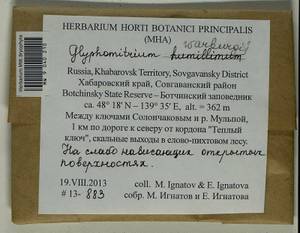 HERBARIUM HORTI BOTANICI PRINCIPALIS
(MHA)
warburgii
Glyphomitrium humillimum
Russia, Khabarovsk Territory, Sovgavansky District
Хабаровский край, Совгаванский район
Botchinsky State Reserve – Ботчинский заповедник
ca. 48° 18' N – 139° 35' E, alt. = 362 m
Между ключами Солончаковым и р. Мульпой,
1 км по дороге к северу от кордона "Теплый
ключ", скальные выходы в елово-пихтовом лесу.
На слабо нависающих открытых
поверхностях.
19.VIII.2013 coll. M. Ignatov & E. Ignatova
# 13- 883 собр. М. Игнатов и Е. Игнатова